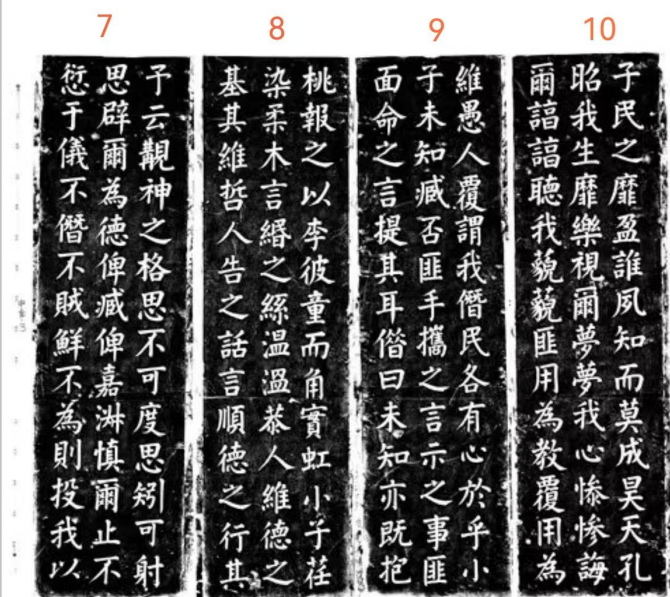 7
予云覯神之格思不可度思矧可射
思辟爾為德俾臧俾嘉淑慎爾止不
愆于儀不僭不賊鮮不為則投我以
8
桃報之以李彼童而角實虹小子荏
染柔木言緡之絲溫溫恭人維德之
基其維哲人告之話言順德之行其
9
維愚人覆謂我僭民各有心於乎小
子未知臧否匪手攜之言示之事匪
面命之言提其耳借曰未知亦既抱
10
子民之靡盈誰夙知而莫成昊天孔
昭我生靡樂視爾夢夢我心慘慘誨
爾諄諄聽我藐藐匪用為教覆用為